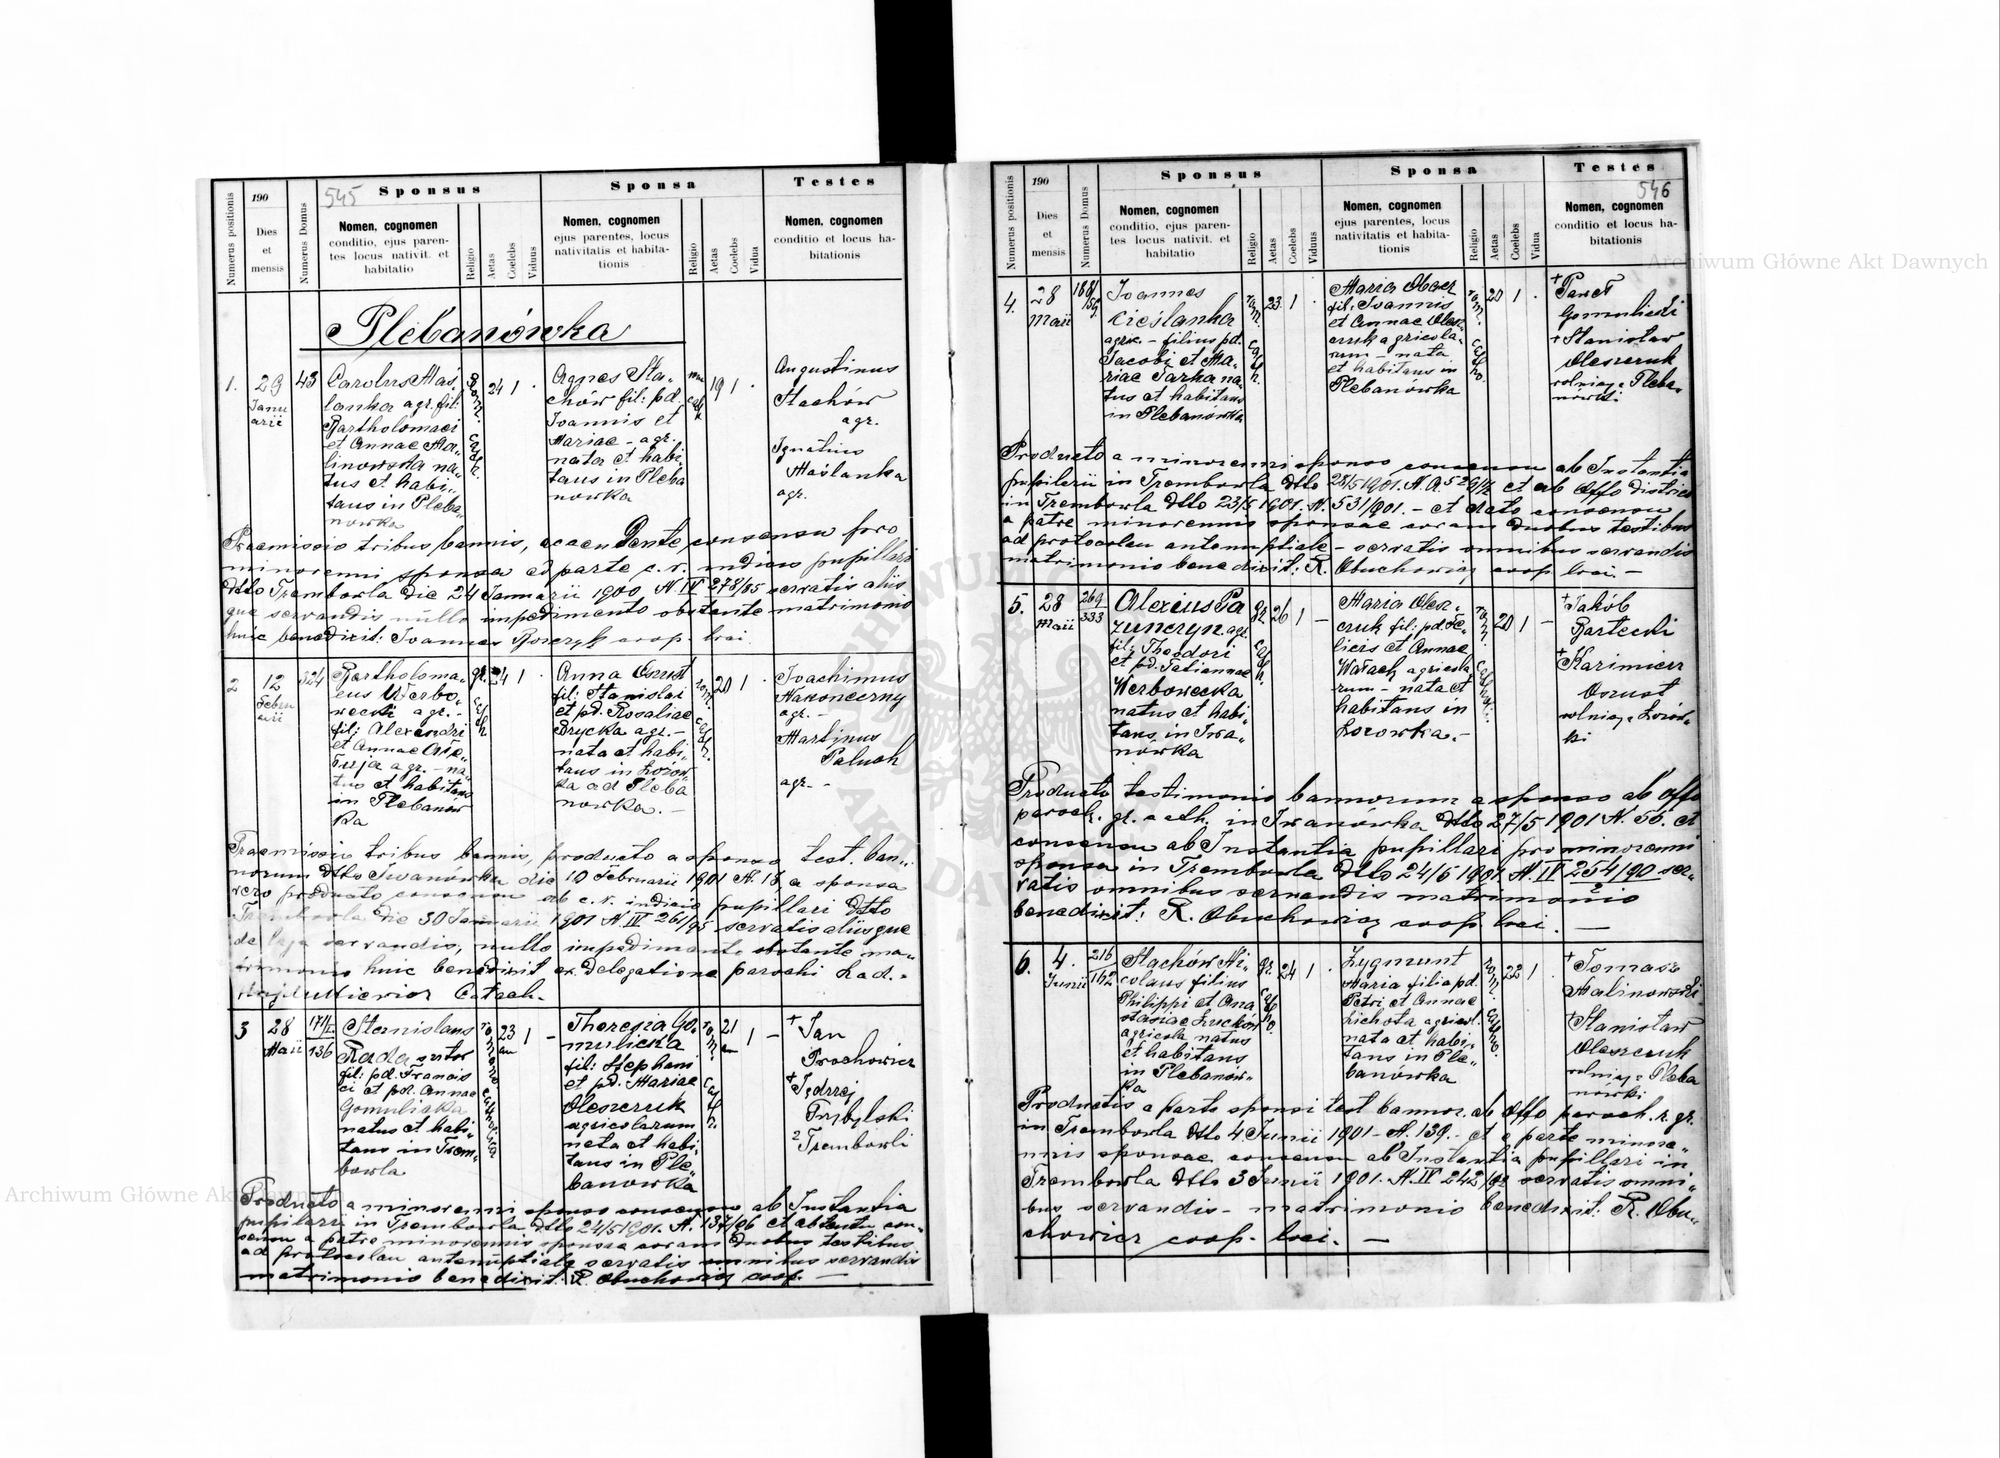 545
Numerus positionis
190
Dies
et
mensis
Numerus Domus
Sponsus
Nomen, cognomen
conditio, ejus paren-
tes locus nativit. et
habitatio
Religio
Aetas
Coelebs
Viduus
Sponsa
Nomen, cognomen
ejus parentes, locus
nativitatis et habita-
tionis
Religio
Aetas
Coelebs
Vidua
Testes
Nomen, cognomen
conditio et locus ha-
bitationis
Plebanówka
1.
29
Janu
arii
43
Carolus Maś„
lanka agr. fil:
Bartholomaei
et Annae Ma„
linowska na„
tus et habi„
tans in Pleba„
nowka
rom. cath.
24
1
Agnes Sta„
chów fil: pd.
Ioannis et
Mariae - agr.
nata et habi„
tans in Pleba
nowka
19
1
Augustinus
Stachów
agr.
Ignatius
Maślanka
agr.
Praemissis tribus bannis, accedente consensu pro
minorenni sponsa ad parte c. r. iudicii pupillari
dtto Trembowla die 24 Januarii 1900 N IV 278/95 servatis aliis
que servandis nullo impedimento obstante matrimonio
huic benedixit: Ioannes coop. loci
2
12
Febru
arii
324
Bartholoma„
eus Werbo„
wecki agr. -
fil: Alexandri
et Annae
agr. - na„
tus et habitans
in Plebanów
ka
gr. cath.
24
1
Anna Osrust
fil: Stanislai
et pd. Rosaliae
Brycka agr. -
nata et habi„
tans in Łozow„
ka ad Pleba
nowka. -
rom. cath.
20
1
Ioachimus
Nakoneczny
agr. -
Martinus
Paluch
agr. -
Praemissis tribus bannis, producto a sponso test. ban„
norum dtto Iwanówka die 10 Februarii 1901 N. 18, a sponsa
vero producto consensu ab c. r. iudicio pupillari dtto
Trembowla die 30 Januarii 1901 N IV 261/95 servatis aliisque
de lege servandis, nullo impedimento obstante ma„
trimonio huic benedixit ex delegatione parochi Lad.
Catech.
3
28
Maii
171/I
136
Stanislaus
Rada sutor
fil: pd. Francis
ci et pd. Annae
Gomulicka
natus et habi„
tans in Trem„
bowla
romano catholica
23
an
1
-
Theresia Go„
mulicka
fil: Stephani
et pd. Mariae
Oleszczuk
agricolarum
nata et habi„
tans in Ple„
banowka
rom. cath.
21
an
1
-
+ Jan
Prochowicz
+ Jędrzej
Przybylski
z Trembowli
Producto a minorenni sponso consensu ab Instantia
pupillari in Trembowla dtto 24/5 1901. N. 137/96 et obtento con„
sensu a patre minorennis sponsae coram duobus testibus
ad protocolau antenuptiale servatis omnibus servandis
matrimonio benedixit: R. Obuchowicz coop. -
546
Numerus positionis
190
Dies
et
mensis
Numerus Domus
Sponsus
Nomen, cognomen
conditio, ejus paren-
tes locus nativit. et
habitatio
Religio
Aetas
Coelebs
Viduus
Sponsa
Nomen, cognomen
ejus parentes, locus
nativitatis et habita-
tionis
Religio
Aetas
Coelebs
Vidua
Testes
Nomen, cognomen
conditio et locus ha-
bitationis
4.
28
Maii
188/
159
Ioannes
Cieślanka
agric. - filius pd.
Jacobi et Ma„
riae Tarka na„
tus et habitans
in Plebanówka
rom. cath.
23
1
Maria Obacz
fil. Ioannis
et Annae Olesz„
czuk agricola„
rum - nata
et habitans in
Plebanówka
rom. catho.
20
1
+ Paweł
Gomulicki
+ Stanisław
Oleszczuk
rolnicy z Pleba„
nowki
Producto a minorenni sponso consensu ab Instantia
pupilarii in Trembowla dtto 23/5 1901. N. 529/2 et ab Offo district
in Trembowla dtto 23/5 1901. N. 531/901. - et dato consensu
a patre minorennis sponsae coram duobus testibus
ad protocolau antenuptiale - servatis omnibus servandis
matrimonio benedixit: R. Obuchowicz coop. loci. -
5.
28
Maii
269
333
Alexius Pa
agr.
fil: Theodori
et pd. Tatiannae
Werbowecka
natus et habi„
tans in Iwa„
nówka
gr. cath.
26
1
-
Maria Olesz„
czuk fil: pd. Fe„
licis et Annae
Wałach agricola
rum - nata et
habitans in
Łozowka. -
20
1
-
+ Jakób
Bartecki
+ Kazimierz
Osrust
rolnicy z Łozów„
ki
Producto testimonio bannorum a sponso ab Offo
paroch. gr. cath. in Iwanówka dtto 27/5 1901 N. 56. et
consensu ab Instantia pupillari pro minorenni
sponsa in Trembowla dtto 24/5 1901. N. IV 254/90 ser„
2
vatis omnibus servandis matrimonio
benedixit: R. Obuchowicz coop. loci. -
6.
4.
Junii
216/
162
Stachów Ni„
colaus filius
Philippi et Ana
stasiae Łucków
agricola natus
et habitans
in Plebanów„
ka
gr. catho.
24
1
Zygmunt
Maria filia pd.
Petri et Annae
Lichota agricol.
nata et habi„
tans in Ple„
banówka
rom. catho.
22
1
+ Tomasz
Malinowski
+ Stanisław
Oleszczuk
rolnicy z Pleba
nówki
Productis a parte sponsi test bannor. ab Offo paroch. r. gr.
in Trembowla dtto 4 Junii 1901 - N. 139. - et a parte minore„
nnis sponsae consensu ab Instantia pupillari in
Trembowla dtto 3 Junii 1901. N. IV 242/92 servatis omni„
bus servandis - matrimonio benedixit: R. Obu„
chowicz coop. loci. -
Archiwum Główne Akt Dawnych
Archiwum Główne Akt Dawnych